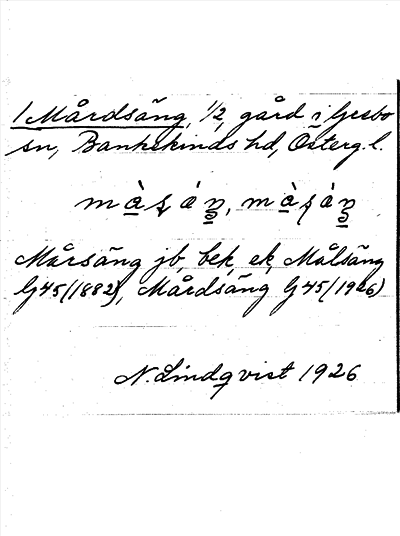 1 Mårdsäng, 1/2, gård i Gesbo
sn, Bankekinds hd, Österg. l.
Mårsäng jb, bek, ek, Målsäng
G45 (1882), Mårdsäng G45 (1926)
N. Lindqvist 1926